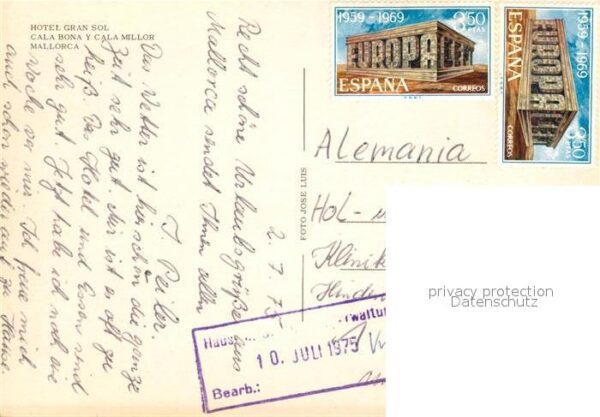 HOTEL GRAN SOL
CALA BONA Y CALA MILLOR
MALLORCA
FOTO JOSE LUIS
1959-1969
3'50
PTAS
EUROPA CEPT
ESPAÑA
CORREOS
1959-1969
3'50
PTAS
EUROPA CEPT
ESPAÑA
CORREOS
2.7.75
Recht schöne Urlaubsgrüße aus
Mallorca sendet Ihnen allen
J. Peiler.
Das Wetter ist hier schon die ganze
Zeit sehr gut. Nur ist es oft zu
heiß. Das Hotel und Essen sind
sehr gut. Jetzt habe ich noch eine
Woche vor mir. Ich freue mich
auch schon wieder auf zu Hause.
Alemania
Klinik
Haus
rwaltun
10. JULI 1975
Bearb.:
privacy protection
Datenschutz